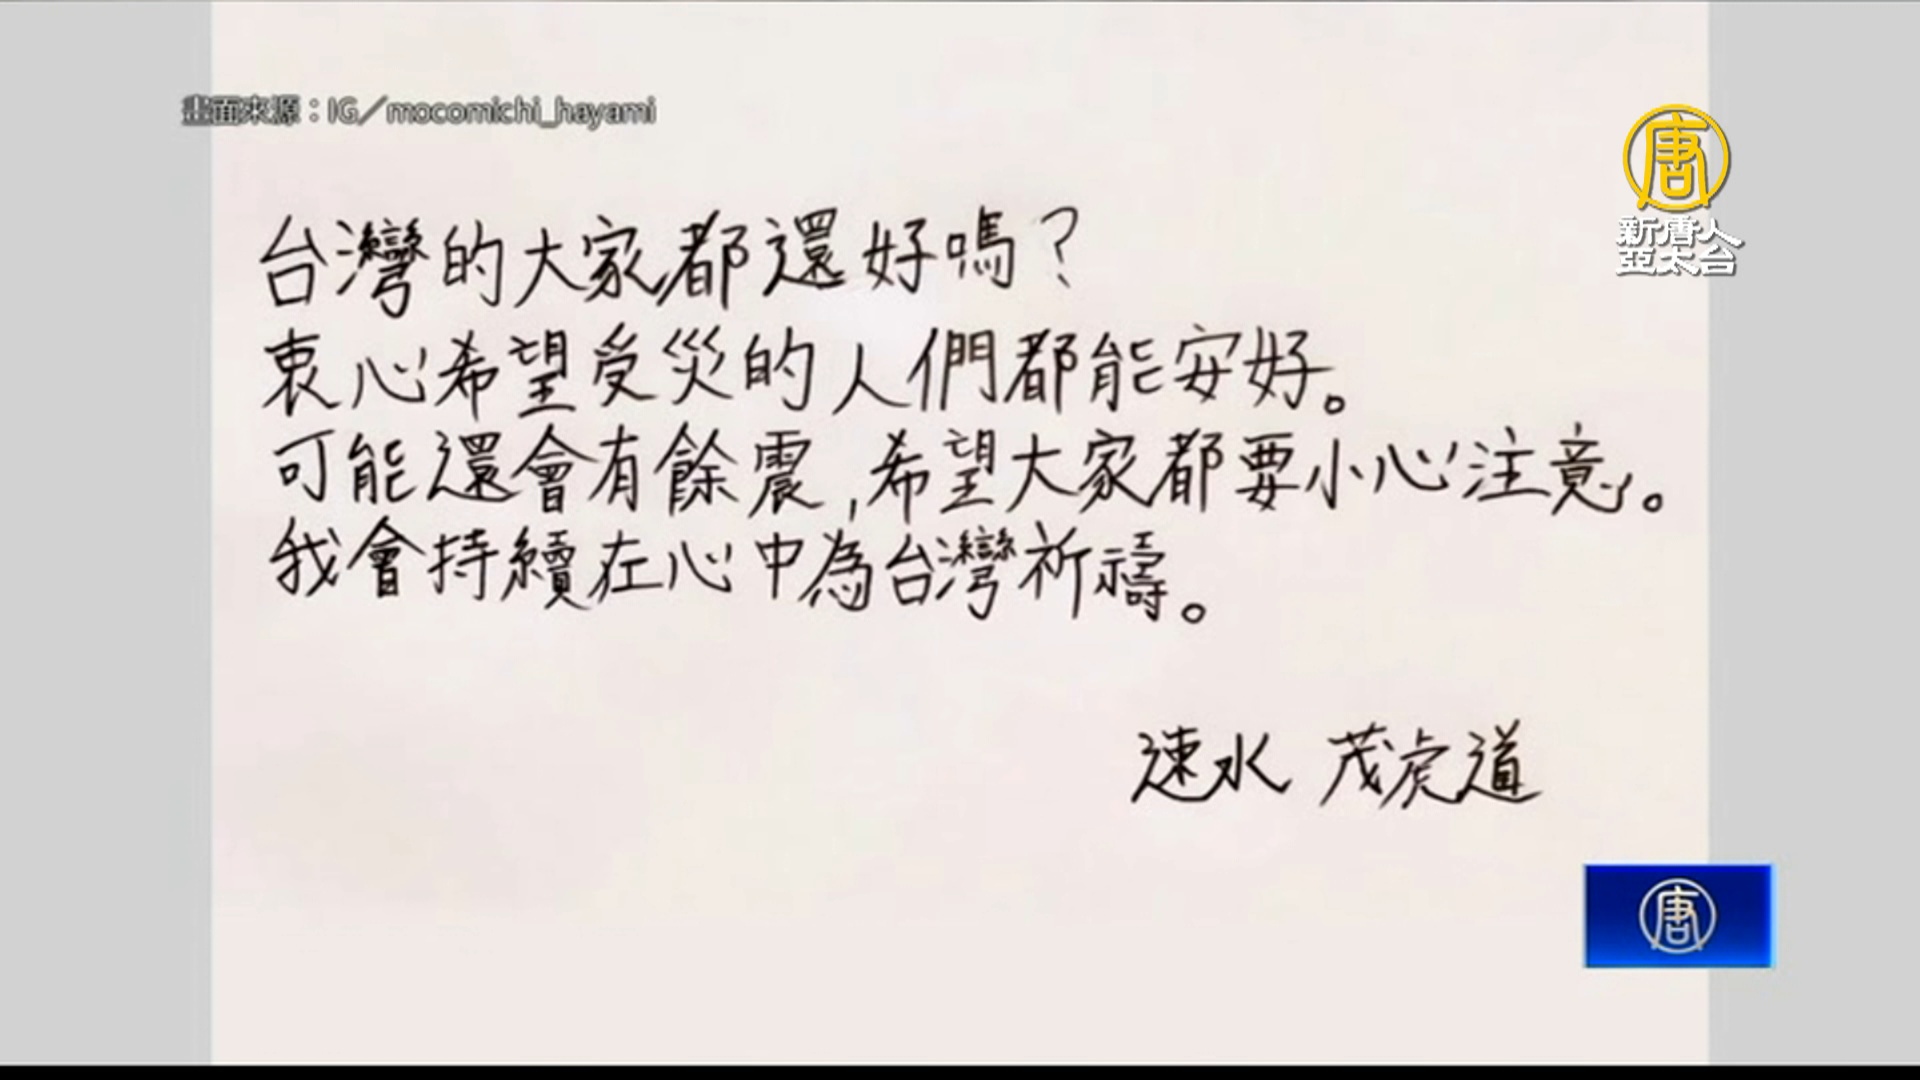 畫面來源：IG／mocomichi_hayami
唐
新唐人
亞太台
台灣的大家都還好嗎？
衷心希望受災的人們都能安好。
可能還會有餘震,希望大家都要小心注意。
我會持續在心中為台灣祈禱。
速水 茂虎道
唐